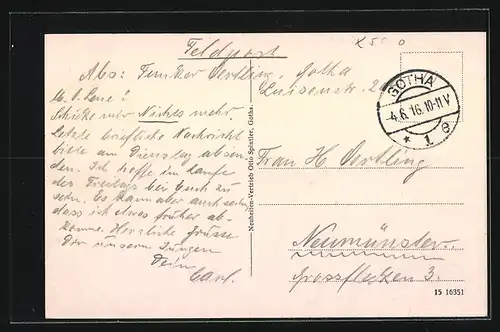 Feldpost
Abs: Funker Oertling, Gotha
Luisenstr. 2
M. l. Lene!
Schicke mir Nichts mehr.
Letzte briefliche Nachricht
bitte am Dienstag absen-
den. Ich hoffe im Laufe
des Freitags bei Euch zu
sein. Es kann aber auch sein,
dass ich etwas früher ab-
komme. Herzliche Grüsse
Dir unserm Jungen
Dein
Carl.
Neuheiten-Vertrieb Otto Stiefite, Gotha.
GOTHA
4.6.16.10-11V
* 1 e
Frau H Oertling
Neumünster.
Grossflecken 3.
15 16351